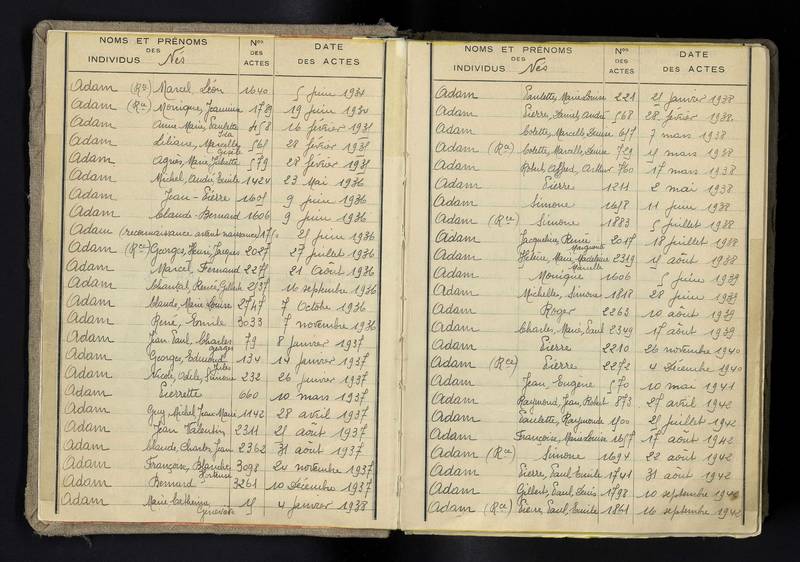 NOMS ET PRÉNOMS DES INDIVIDUS Nés Nos DES ACTES DATE DES ACTES
Adam (Rce) Marcel, Léon 1640 5 juin 1934
Adam (Rce) Monique, Jeannine 1789 19 juin 1934
Adam Anne-Marie, Paulette 458 16 février 1935
Adam Liliane, Marcelle 561 28 février 1935
Adam Agnès, Marie, Juliette 579 28 février 1935
Adam Michel, André, Emile 1424 23 Mai 1936
Adam Jean-Pierre 1605 9 juin 1936
Adam Claude-Bernard 1606 9 juin 1936
Adam (reconnaissance avant naissance) juin 1936
Adam (Rce) Georges, Henri, Jacques 2027 27 juillet 1936
Adam Marcel, Fernand 2275 21 Août 1936
Adam Chantal, Renée, Gilberte 2537 16 septembre 1936
Adam Claude, Marie Louise 2747 7 Octobre 1936
Adam René, Emile 3033 7 novembre 1936
Adam Jean Paul, Charles Georges 79 8 janvier 1937
Adam Georges, Edmond, Jules 134 14 janvier 1937
Adam Nicole, Odile, Simone 232 26 janvier 1937
Adam Pierrette 660 10 mars 1937
Adam Guy, Michel, Jean-Marie 1142 28 avril 1937
Adam Jean Valentin 2311 21 août 1937
Adam Claude, Charles, Jean 2362 31 août 1937
Adam Françoise, Blanche 3098 24 novembre 1937
Adam Bernard 3261 10 Décembre 1937
Adam Marie Catherine Geneviève 4 janvier 1938
NOMS ET PRÉNOMS DES INDIVIDUS Nés Nos DES ACTES DATE DES ACTES
Adam Paulette, Marie Louise 221 21 janvier 1938
Adam Pierre, Daniel, André 568 28 février 1938
Adam Colette, Marcelle, Louise 657 7 mars 1938
Adam (Rce) Colette, Marcelle, Louise 729 mars 1938
Adam Robert, Alfred, Arthur 760 17 mars 1938
Adam Pierre 1211 2 mai 1938
Adam Simone 1658 11 juin 1938
Adam (Rce) Simone 1883 5 juillet 1938
Adam Jacqueline, Renée Marguerite 2017 18 juillet 1938
Adam Hélène, Marie, Madeleine Marcelle 2319 août 1938
Adam Monique 1606 5 juin 1939
Adam Michelle, Simone 1818 28 juin 1939
Adam Roger 2263 10 août 1939
Adam Charles, Marie, Paul 2349 17 août 1939
Adam Pierre 2210 26 novembre 1940
Adam (Rce) Pierre 2272 4 Décembre 1940
Adam Jean Eugène 570 10 mai 1941
Adam Raymond, Jean, Robert 873 27 avril 1942
Adam Paulette, Raymonde 1500 25 juillet 1942
Adam Françoise, Marie Louise 1657 17 août 1942
Adam (Rce) Simone 1694 22 août 1942
Adam Pierre, Paul Emile 1741 31 août 1942
Adam Gilbert, Paul, Louis 1798 10 septembre 1942
Adam (Rce) Pierre, Paul, Emile 1861 16 septembre 1942